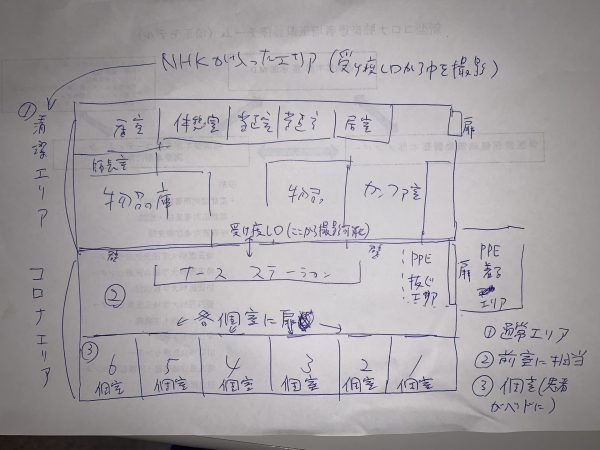 NHKが入ったエリア (受け渡し口から中を撮影)
① 清潔エリア
居室
休憩室
当直室
当直室
居室
扉
師長室
物品庫
物品
カンファ室
受け渡し口 (ここから撮影可能)
壁
壁
コロナエリア
②
ナース ステーション
PPE
脱ぐ
エリア
扉
PPE
着る
エリア
各個室に扉
③
6
個室
5
個室
4
個室
3
個室
2
個室
1
個室
① 通常エリア
② 前室に相当
③ 個室(患者
がベッドに)